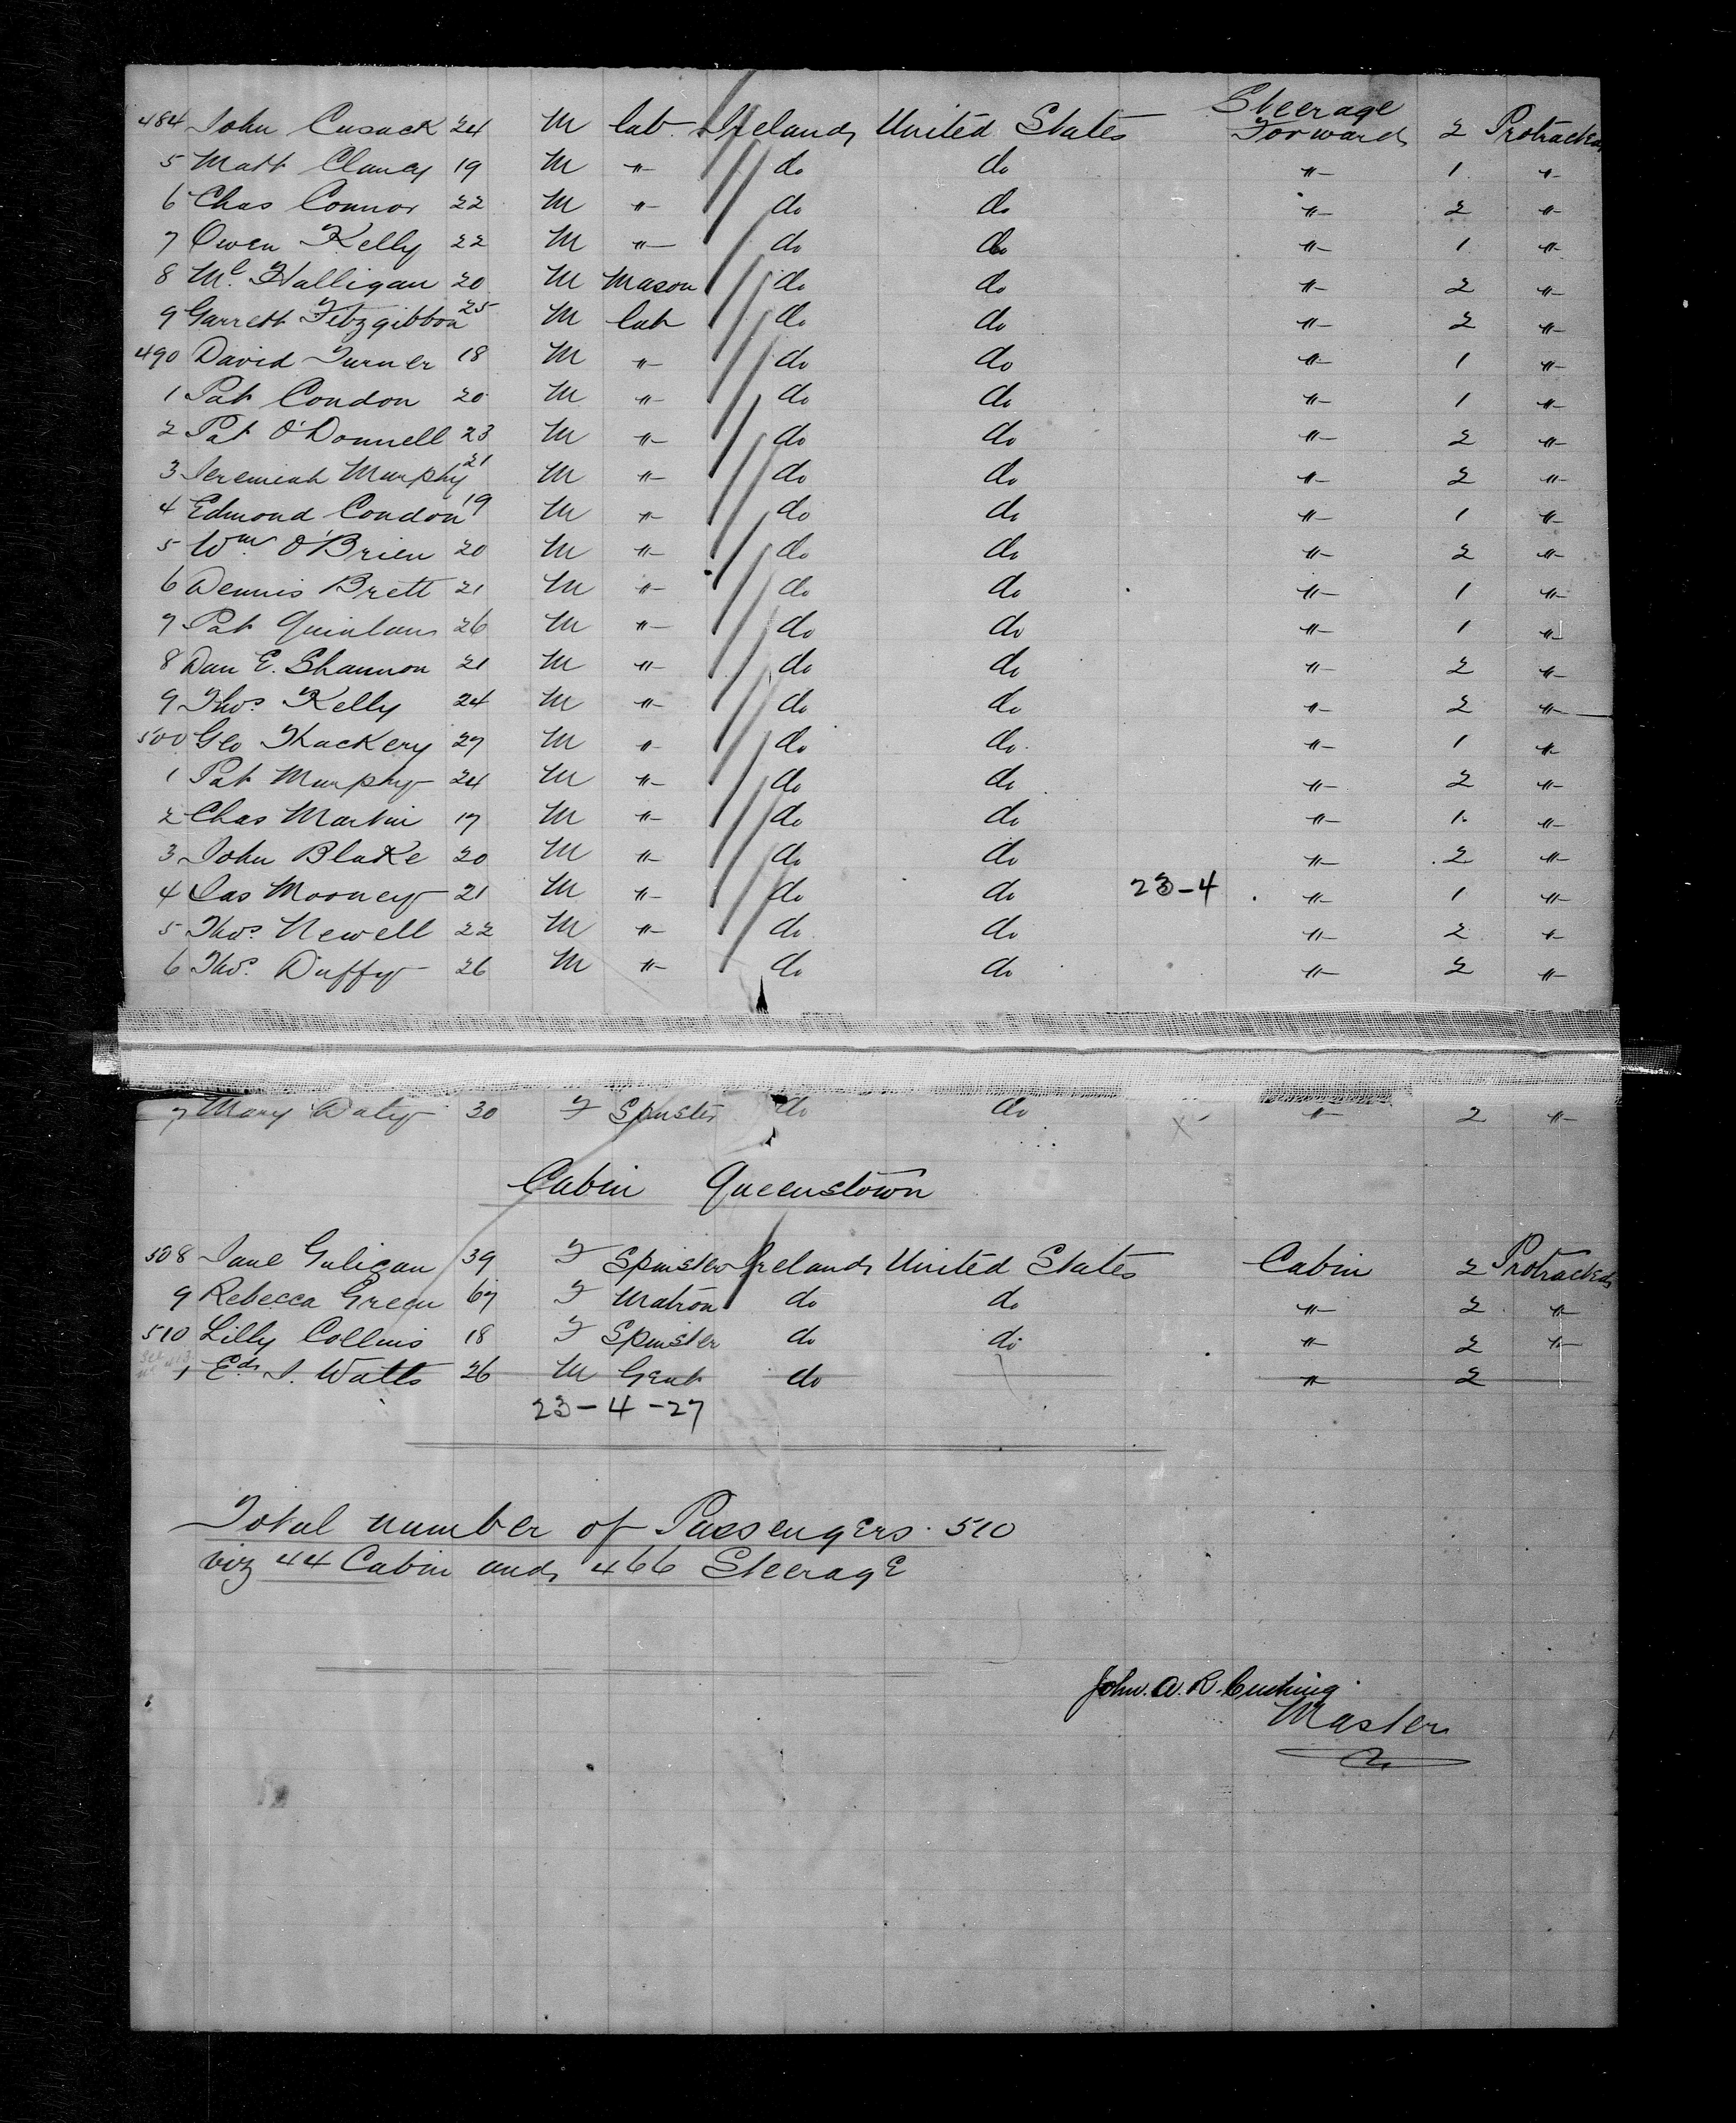 484 John Cusack 24 M lab. Ireland United States Steerage Forward 2 Protracted
5 Matt Clancy 19 M " do do " 1 "
6 Chas Connor 22 M " do do " 2 "
7 Owen Kelly 22 M " do do " 1 "
8 Ml. Halligan 20 M Mason do do " 2 "
9 Garrett Fitzgibbon 25 M lab do do " 2 "
490 David Turner 18 M " do do " 1 "
1 Pat Condon 20 M " do do " 1 "
2 Pat O'Donnell 23 M " do do " 2 "
3 Jeremiah Murphy 21 M " do do " 2 "
4 Edmond Condon 19 M " do do " 1 "
5 Wm O'Brien 20 M " do do " 2 "
6 Dennis Brett 21 M " do do " 1 "
7 Pat Quinlan 26 M " do do " 1 "
8 Dan E. Shannon 21 M " do do " 2 "
9 Thos. Kelly 24 M " do do " 2 "
500 Geo Thackery 27 M " do do " 1 "
1 Pat Murphy 24 M " do do " 2 "
2 Chas Martin 17 M " do do " 1 "
3 John Blake 20 M " do do " 2 "
4 Jas Mooney 21 M " do do 23-4 " 1 "
5 Thos. Newell 22 M " do do " 2 "
6 Thos. Duffy 26 M " do do " 2 "
7 Mary Daly 30 F Spinster do do X " 2 "
Cabin Queenstown
508 Jane Guligan 39 F Spinster Ireland United States Cabin 2 Protracted
9 Rebecca Green 67 F Matron do do " 2 "
510 Lilly Collins 18 F Spinster do do " 2 "
1 Ed. J. Watts 26 M Gent do " 2
23-4-27
Total number of Passengers. 510
viz 44 Cabin and 466 Steerage
John. A. R. Cushing
Master